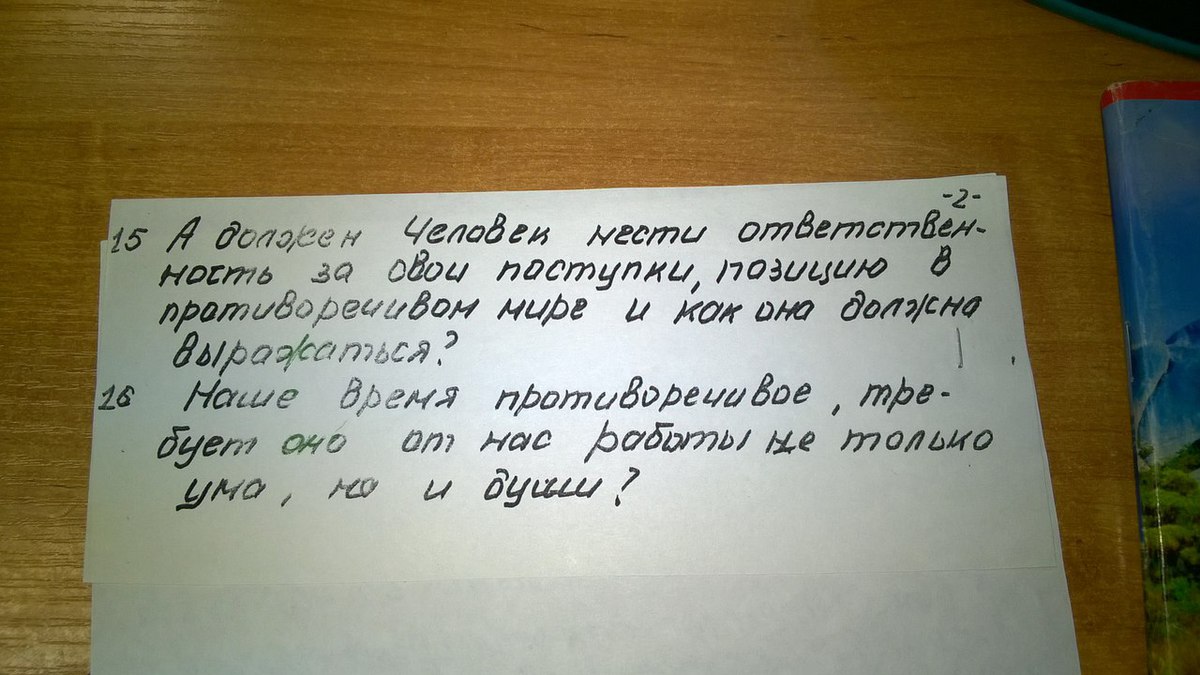 -2-
15 А должен Человек нести ответствен-
ность за свои поступки, позицию в
противоречивом мире и как она должна
выражаться?
16 Наше время противоречивое, тре-
бует оно от нас работы не только
ума, но и души?